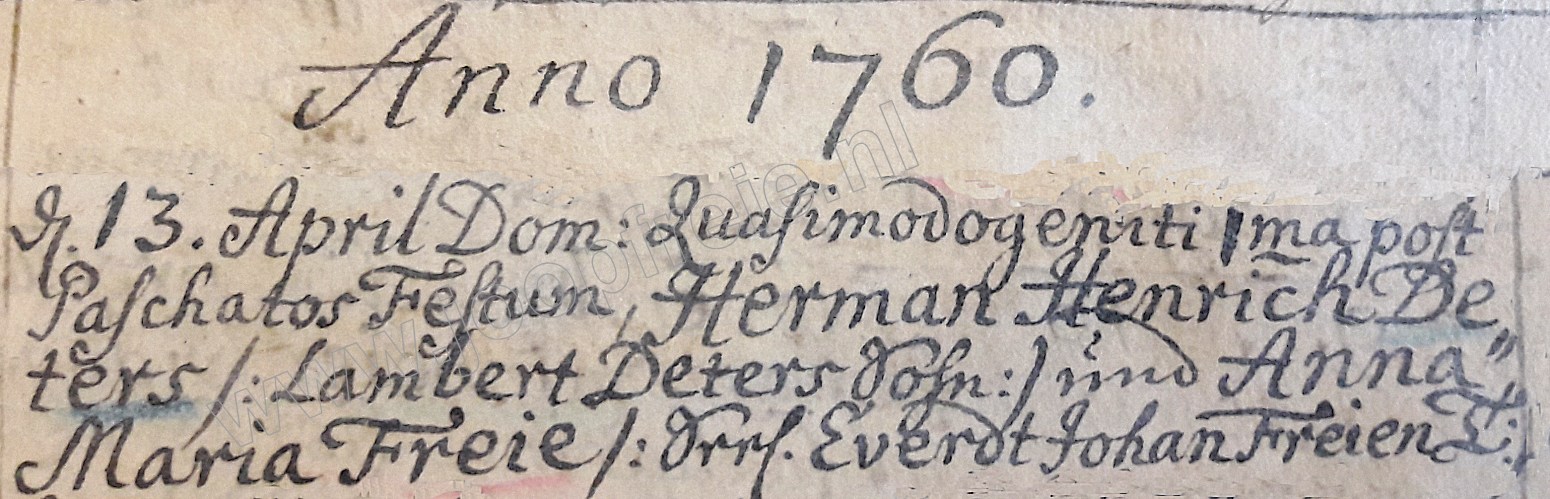 Anno 1760.
d. 13. April Dom: Quasimodogeniti 1ma post
Paschatos Festum, Herman Henrich De„
ters /: Lambert Deters Sohn :/ und Anna„
Maria Freie /: Everdt Johan Freien T: /
www.joopfreie.nl